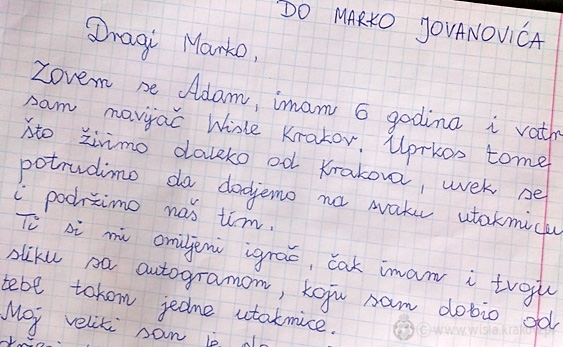 DO MARKO JOVANOVIĆA
Dragi Marko,
Zovem se Adam, imam 6 godina i vatr
sam navijač Wisle Krakov. Uprkos tome
što živimo daleko od Krakova, uvek se
potrudimo da dodjemo na svaku utakmicu
i podržimo naš tim.
Ti si mi omiljeni igrač, čak imam i tvoju
sliku sa autogramom, koju sam dobio od
tebe tokom jedne utakmice.
Moj veliki san je da
© www.wisla.krakow.pl